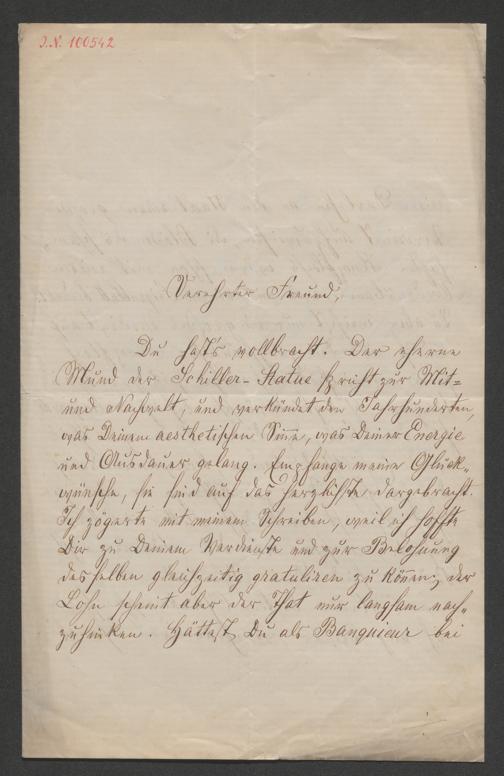 J.N. 100542
Verehrter Freund,
Du hast's vollbracht. Der eherne
Mund der Schiller-Statue spricht zur Mit-
und Nachwelt, und verkündet den Jahrhunderten,
was Deinem aesthetischen Sinne, was Deiner Energie
und Ausdauer gelang. Empfange meine Glück-
wünsche, sie sind auf das herzlichste dargebracht.
Ich zögerte mit meinem Schreiben, weil ich hoffte
Dir zu Deinem Verdienste und zur Belohnung
desselben gleichzeitig gratuliren zu können; der
Lohn scheint aber der That nur langsam nach-
zuhinken. Hättest Du als Banquieur bei